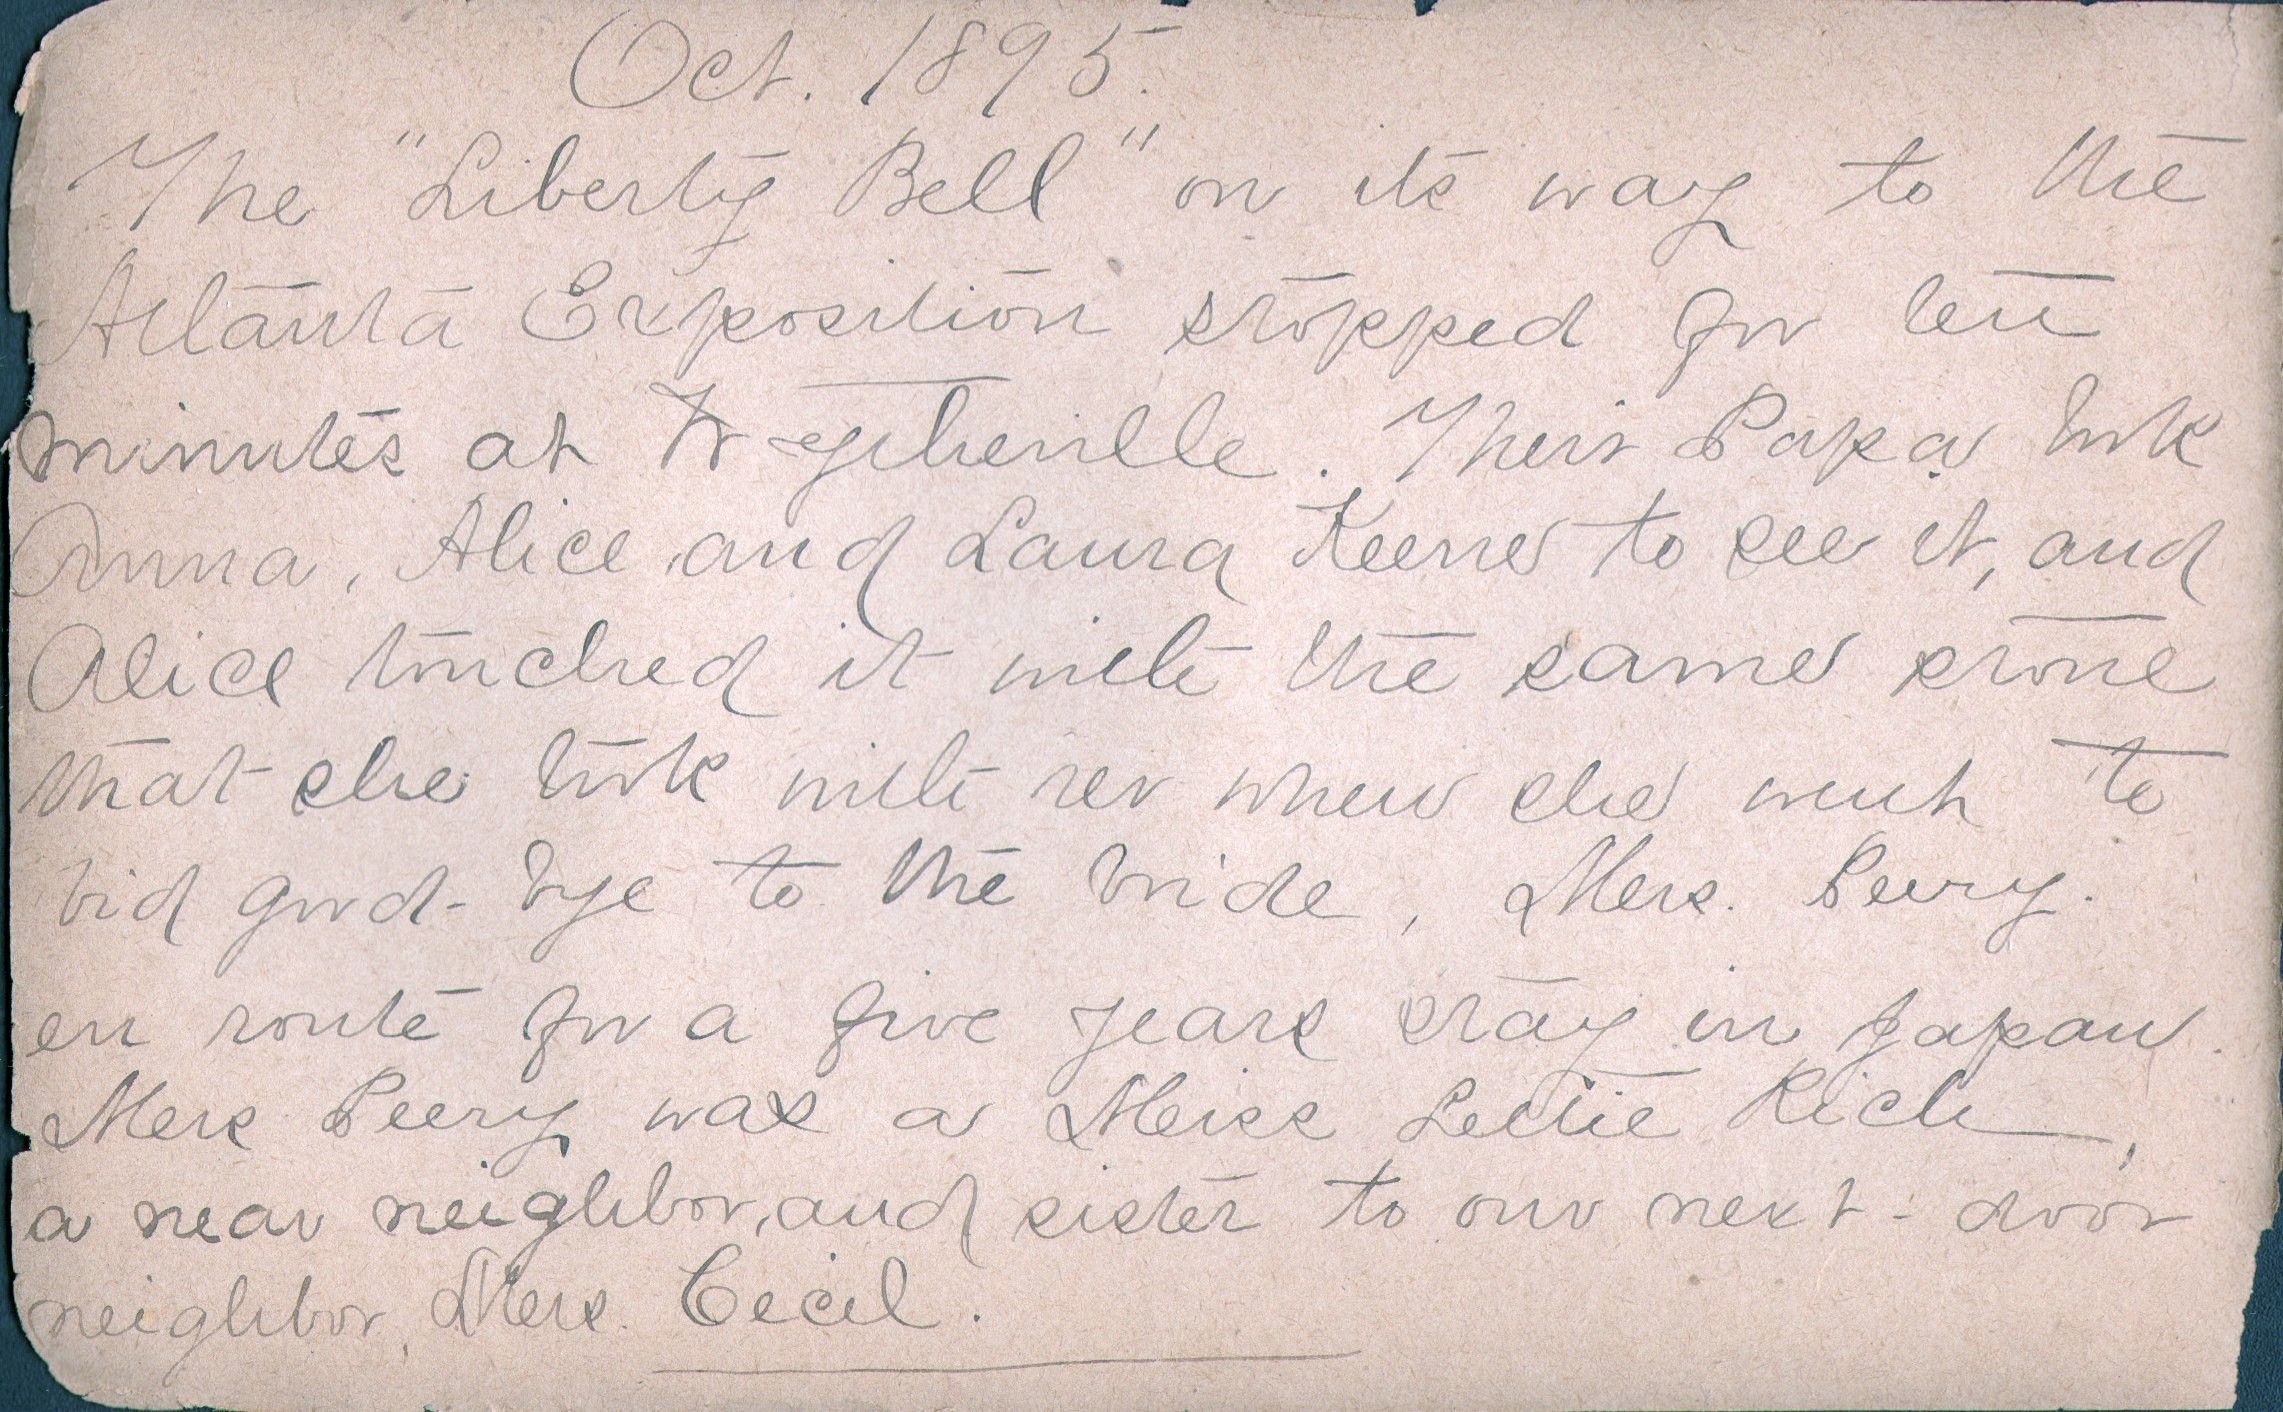 Oct. 1895.
The "Liberty Bell" on its way to the
Atlanta Exposition stopped for ten
minutes at Wytheville. Their Papa took
Anna, Alice and Laura Keene to see it, and
Alice touched it with the same stone
that she took with her when she went to
bid good-bye to the bride, Mrs. Peery.
en route for a five years stay in Japan.
Mrs Peery was a Miss Lettie Rich,
a near neighbor, and sister to our next-door
neighbor, Mrs. Cecil.